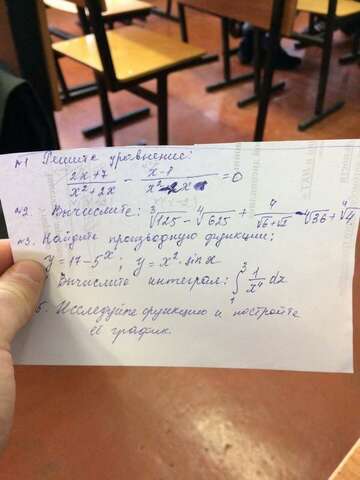 №1 Решите уравнение:
(2x+7)/(x²+2x) - (x-8)/(x²-2x) = 0
№2. Вычислите: ³√125 - ⁴√625 + 4/(√6+√2) - ⁴√36 + ⁴√4
№3. Найдите производную функции:
y=17-5ˣ; y=x²·sinx
Вычислите интеграл: ∫₁³ 1/x⁴ dx
5. Исследуйте функцию и постройте
её график.